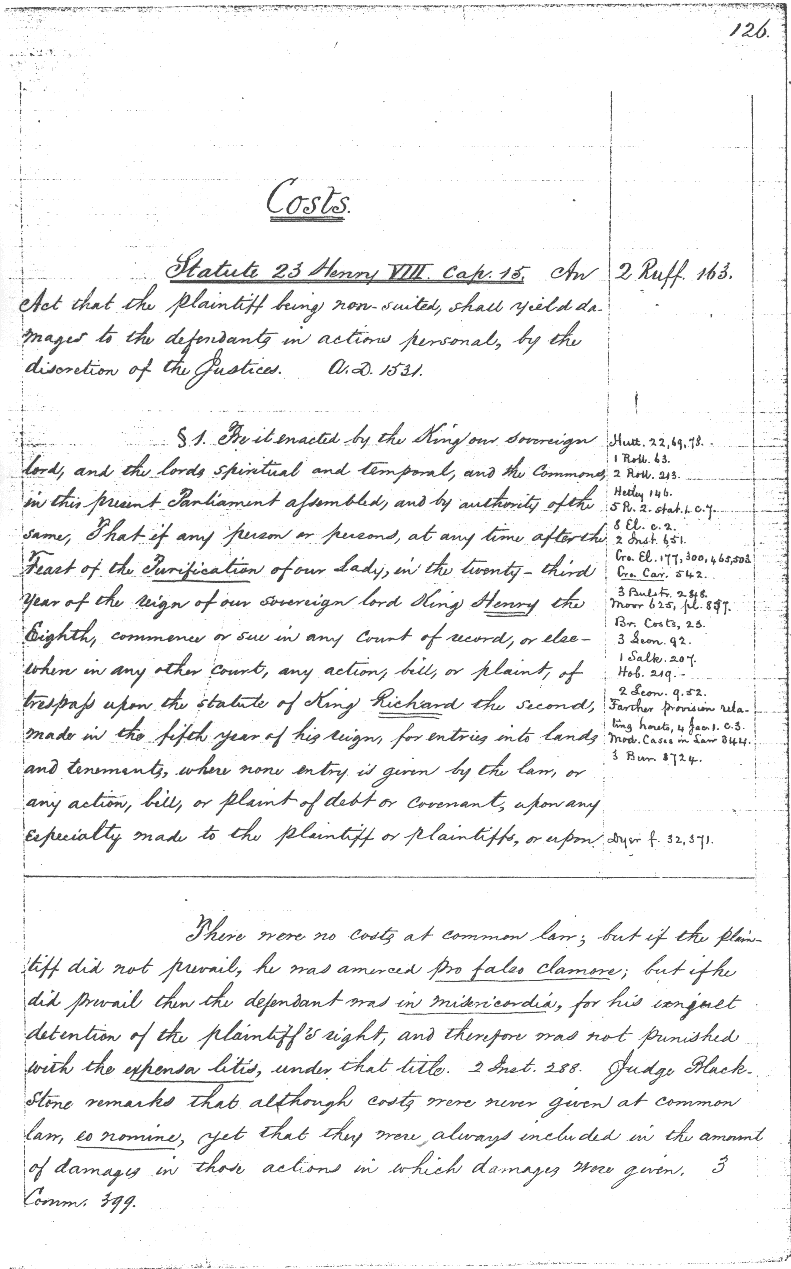 126.
Costs.
Statute 23 Henry VIII. Cap. 15, An
Act that the plaintiff being non-suited, shall yield da-
mages to the defendants in actions personal, by the
discretion of the Justices. A.D. 1531.
2 Ruff. 163.
§ 1. Be it enacted by the King our sovereign
lord, and the lords spiritual and temporal, and the Commons
in this present Parliament assembled, and by authority of the
same, That if any person or persons, at any time after the
Feast of the Purification of our Lady, in the twenty-third
year of the reign of our sovereign lord King Henry the
Eighth, commence or sue in any Court of record, or else-
where in any other court, any action, bill, or plaint, of
trespass upon the statute of King Richard the second,
made in the fifth year of his reign, for entries into lands
and tenements, where none entry is given by the law, or
any action, bill, or plaint of debt or covenant, upon any
especialty made to the plaintiff or plaintiffs, or upon
Hutt. 22, 69, 78.
1 Roll. 63.
2 Roll. 213.
Hetley 146.
5 R. 2. stat. 1. c. 7.
8 El. c. 2.
2 Inst. 651.
Cro. El. 177, 300, 465, 503
Cro. Car. 542.
3 Bulstr. 248.
Moor 625, pl. 857.
Br. Costs, 23.
3 Leon. 92.
1 Salk. 207.
Hob. 219.
2 Leon. 9. 52.
Farther provision rela-
ting hereto, 4 Jac. 1. c. 3.
Mod. Cases in Law 344.
3 Burr. 1724.
Dyer f. 32, 371.
There were no costs at common law; but if the plain-
tiff did not prevail, he was amerced pro falso clamore; but if he
did prevail then the defendant was in misericordia, for his unjust
detention of the plaintiff's right, and therefore was not punished
with the expensa litis, under that title. 2 Inst. 288. Judge Black-
stone remarks that although costs were never given at common
law, eo nomine, yet that they were always included in the amount
of damages in those actions in which damages were given. 3
Comm. 399.